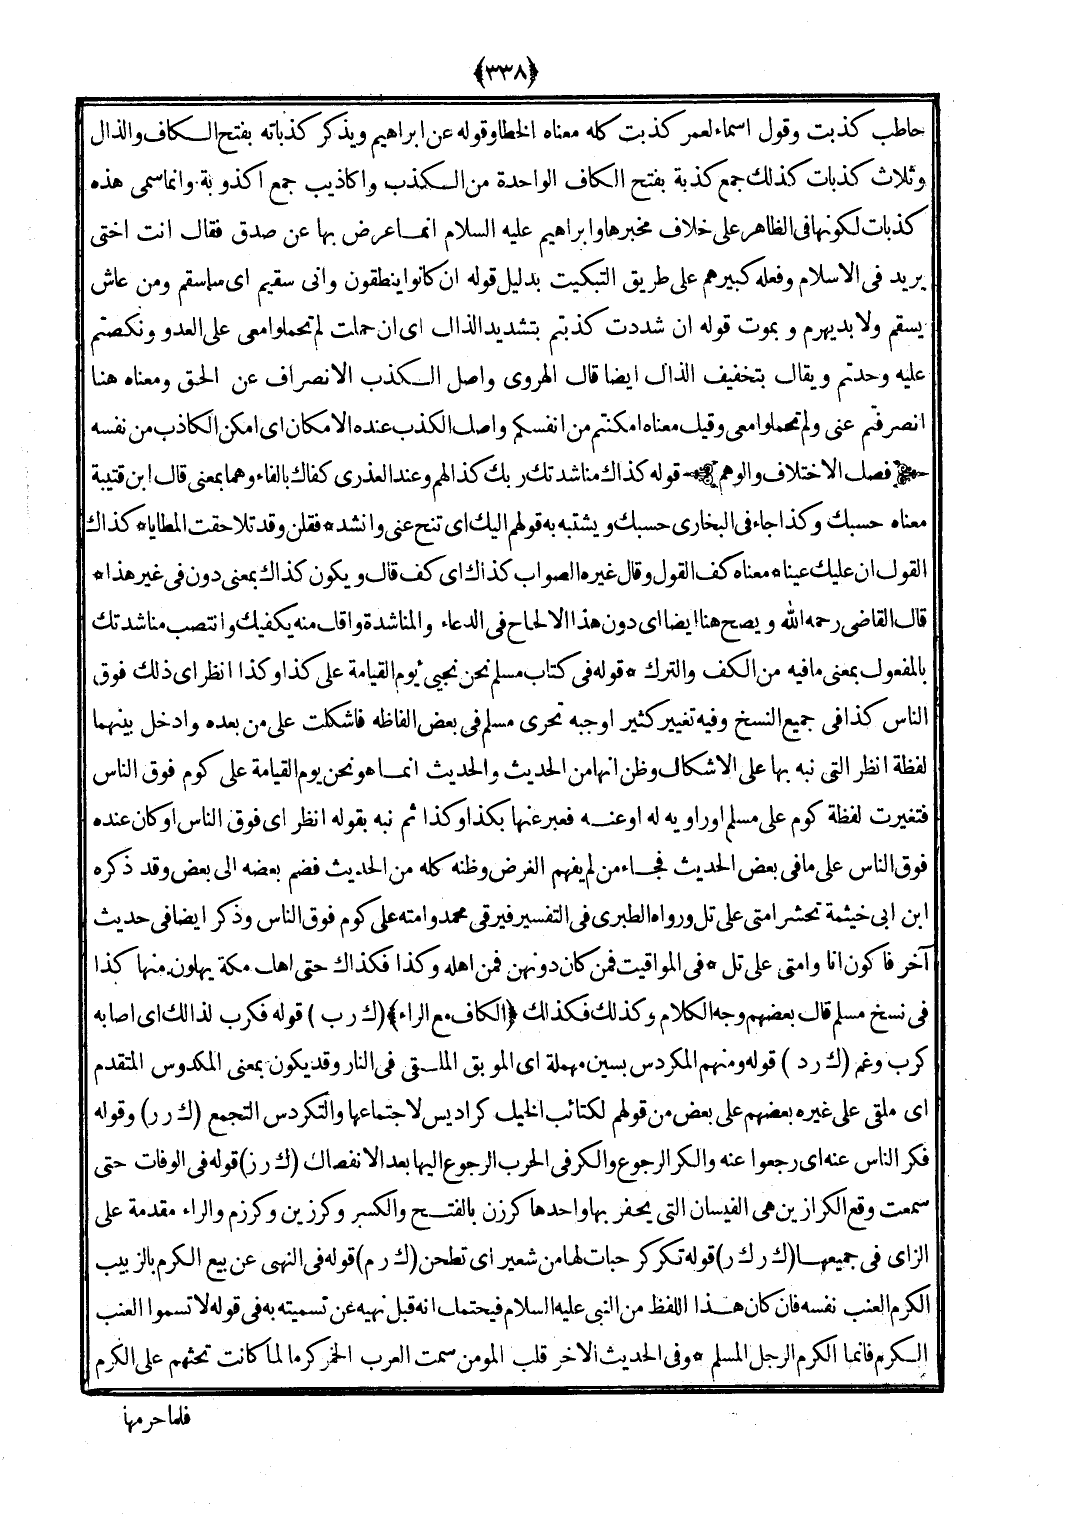 ﴿٣٣٨﴾
حاطب كذبت وقول اسماء لعمر كذبت كله معناه الخطا وقوله عن ابراهيم ويذكر كذباته بفتح الكاف والذال
وثلاث كذبات كذلك جمع كذبة بفتح الكاف الواحدة من الكذب واكاذيب جمع اكذوبة وانما سمى هذه
كذبات لكونها فى الظاهر على خلاف مخبرها وابراهيم عليه السلام انما عرض بها عن صدق فقال انت اختى
يريد فى الاسلام وفعله كبيرهم على طريق التبكيت بدليل قوله ان كانوا ينطقون وانى سقيم اى ساسقم ومن عاش
يسقم ولابد يهرم و يموت قوله ان شددت كذبتم بتشديد الذال اى ان حملت لم تحملوا معى على العدو ونكصتم
عليه وحدتم ويقال بتخفيف الذال ايضا قال الهروى واصل الكذب الانصراف عن الحق ومعناه هنا
انصرفتم عنى ولم تحملوا معى وقيل معناه امكنتم من انفسكم واصل الكذب عنده الامكان اى امكن الكاذب من نفسه
فصل الاختلاف والوهم قوله كذاك مناشدتك ربك كذا لهم وعند العذرى كفاك بالفاء وهما بمعنى قال ابن قتيبة
معناه حسبك وكذا جاء فى البخارى حسبك ويشتبه به قولهم اليك اى تنح عنى وانشد * فقلن وقد تلاحقت المطايا * كذاك
القول ان عليك عينا * معناه كف القول وقال غيره الصواب كذاك اى كف قال ويكون كذاك بمعنى دون فى غير هذا *
قال القاضى رحمه الله ويصح هنا ايضا اى دون هذا الالحاح فى الدعاء والمناشدة واقل منه يكفيك وانتصب مناشدتك
بالمفعول بمعنى مافيه من الكف والترك * قوله فى كتاب مسلم نحن نجيئ يوم القيامة على كذا وكذا انظر اى ذلك فوق
الناس كذا فى جميع النسخ وفيه تغيير كثير اوجبه تحرى مسلم فى بعض الفاظه فاشكلت على من بعده وادخل بينهما
لفظة انظر التى نبه بها على الاشكال وظن انها من الحديث والحديث انما هو نحن يوم القيامة على كوم فوق الناس
فتغيرت لفظة كوم على مسلم او راويه له او عنه فعبر عنها بكذا وكذا ثم نبه بقوله انظر اى فوق الناس او كان عنده
فوق الناس على مافى بعض الحديث فجاء من لم يفهم الغرض وظنه كله من الحديث فضم بعضه الى بعض وقد ذكره
ابن ابى خيثمة تحشر امتى على تل ورواه الطبرى فى التفسير فيرقى محمد وامته على كوم فوق الناس وذكر ايضا فى حديث
آخر فاكون انا وامتى على تل * فى المواقيت فمن كان دونهن فمن اهله وكذا فكذاك حتى اهل مكة يهلون منها كذا
فى نسخ مسلم قال بعضهم وجه الكلام وكذلك فكذلك ﴿الكاف مع الراء﴾ (ك ر ب) قوله فكرب لذالك اى اصابه
كرب وغم (ك ر د) قوله ومنهم المكردس بسين مهملة اى الموبق الملقى فى النار وقد يكون بمعنى المكدوس المتقدم
اى ملقى على غيره بعضهم على بعض من قولهم لكتائب الخيل كراديس لاجتماعها والتكردس التجمع (ك ر ر) وقوله
فكر الناس عنه اى رجعوا عنه والكر الرجوع والكر فى الحرب الرجوع اليها بعد الانفصال (ك ر ز) قوله فى الوفات حتى
سمعت وقع الكرازين هى الفيسان التى يحفر بها واحدها كرزن بالفتح والكسر وكرزين وكرزم والراء مقدمة على
الزاى فى جميعها (ك ر ك ر) قوله تكركر حبات لها من شعير اى تطحن (ك ر م) قوله فى النهى عن بيع الكرم بالزبيب
الكرم العنب نفسه فان كان هذا اللفظ من النبى عليه السلام فيحتمل انه قبل نهيه عن تسميته به فى قوله لا تسموا العنب
الكرم فانما الكرم الرجل المسلم * وفى الحديث الاخر قلب المومن سمت العرب الخمر كرما لما كانت تحثهم على الكرم
فلما حرمها